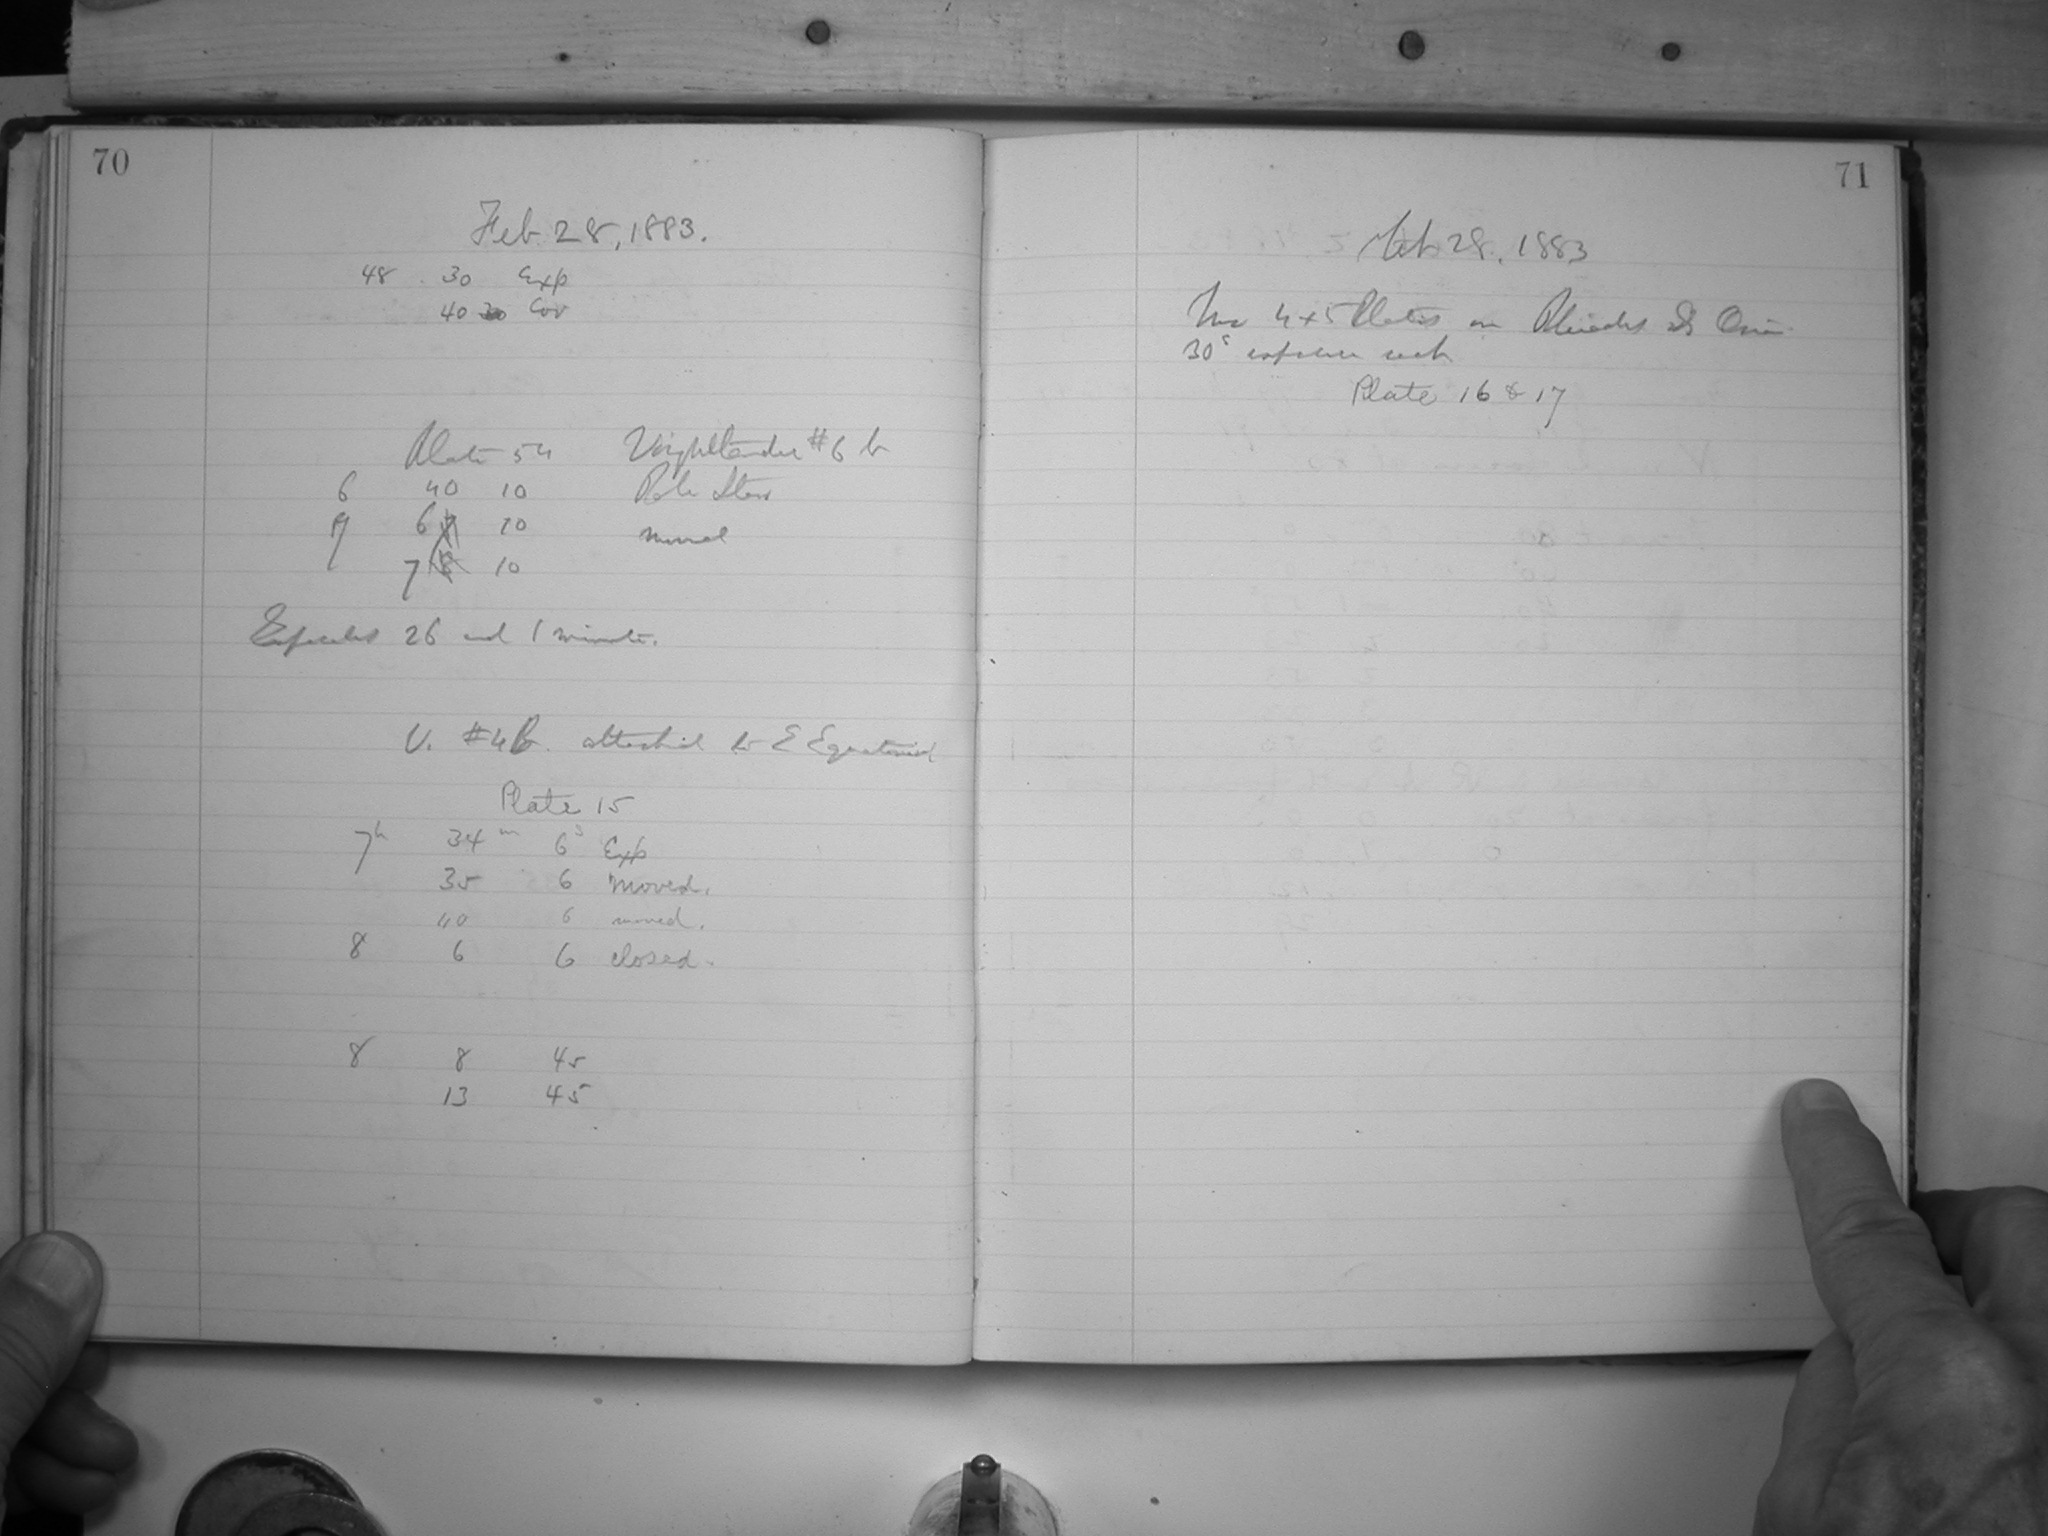 70
Feb 28, 1883.
48 30 Exp
40 30 Cov
Plate 54 Voightlander #6 b
6 40 10 Pole Star
7 6 10 moved
7 8 10
Exposures 26 and 1 minute.
V. #4 B. attached to E Equatorial
Plate 15
7h 34m 6s Exp
35 6 moved.
40 6 moved.
8 6 6 closed.
8 8 45
13 45
71
Feb 28, 1883
Two 4x5 Plates on Pleiades & Orion
30s exposure each
Plate 16 & 17